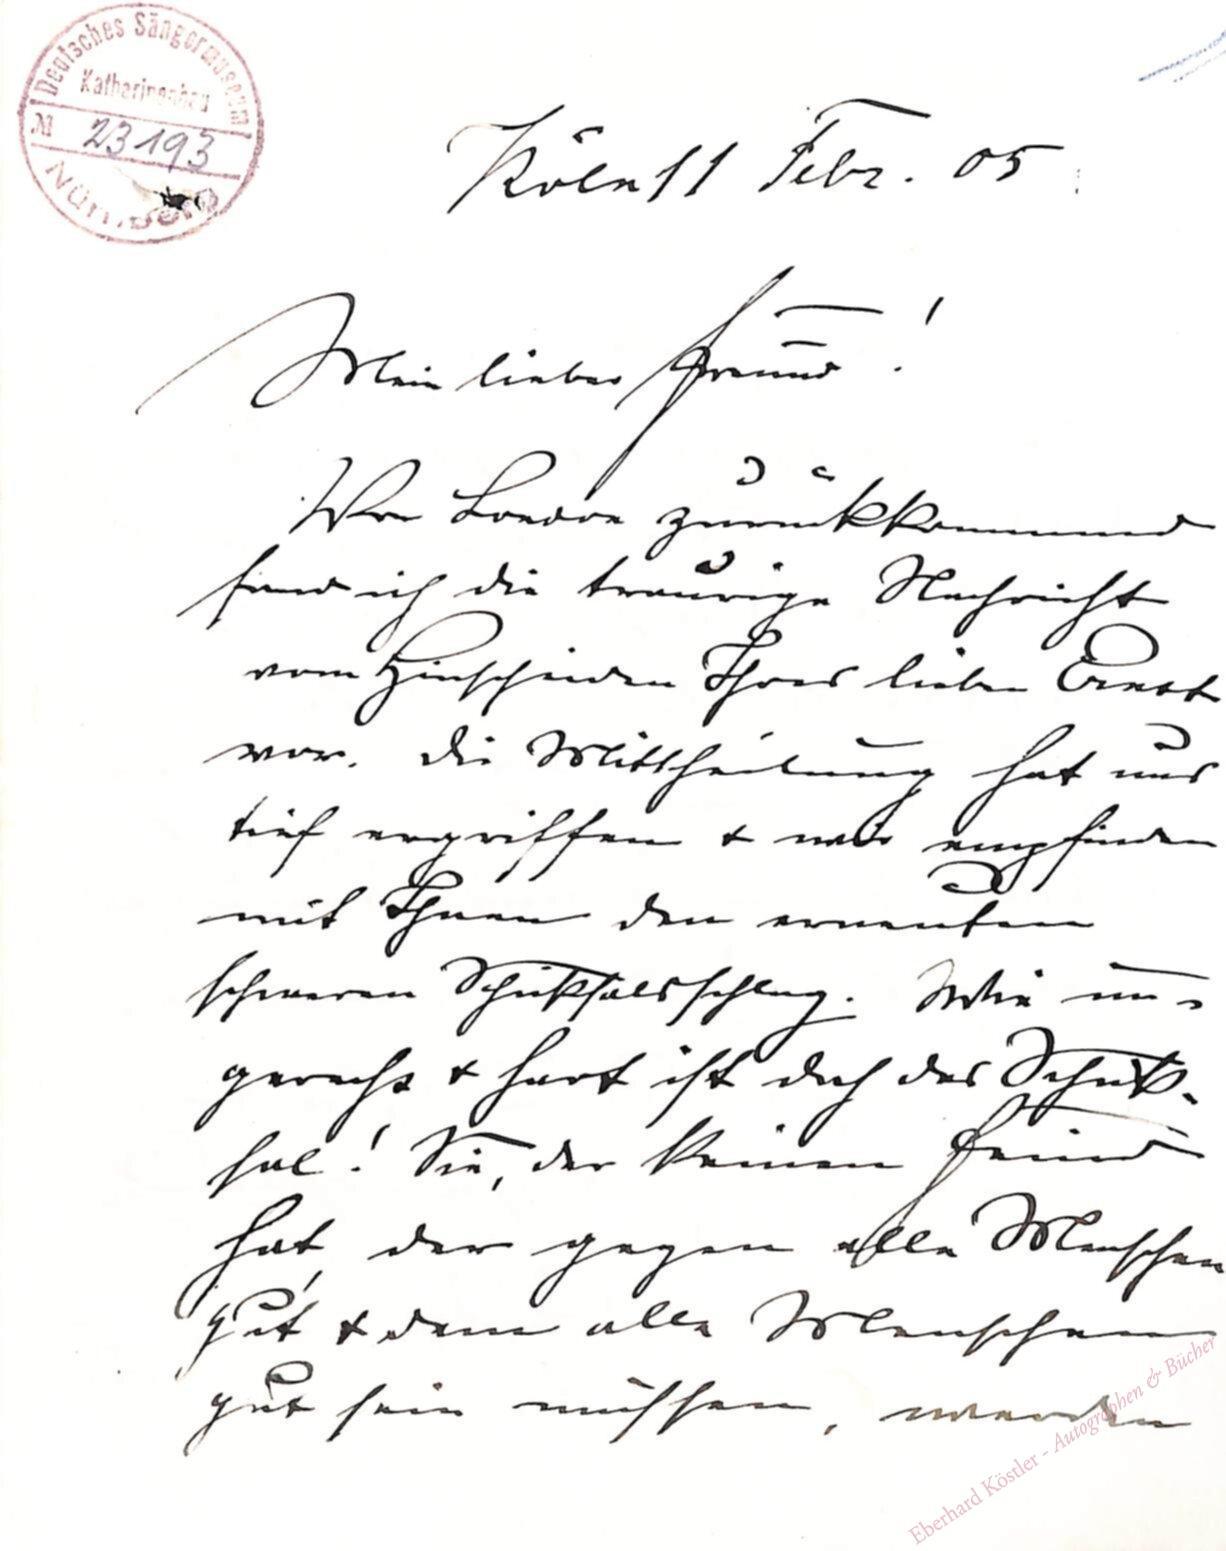 Deutsches Sängermuseum
Katharinenbau
№ 23193
Nürnberg
Köln 11 Febr. 05
Mein lieber Freund!
Von London zurückkommend
fand ich die traurige Nachricht
vom Hinscheiden Ihres lieben Ernst
vor. Die Mittheilung hat uns
tief ergriffen & wir empfinden
mit Ihnen den erneuten
schweren Schicksalsschlag. Wie un-
gerecht & hart ist doch das Schick-
sal! Sie, der keinen Feind
hat, der gegen alle Menschen
gut & dem alle Menschen
gut sein müssen, werden
Eberhard Köstler - Autographen & Bücher